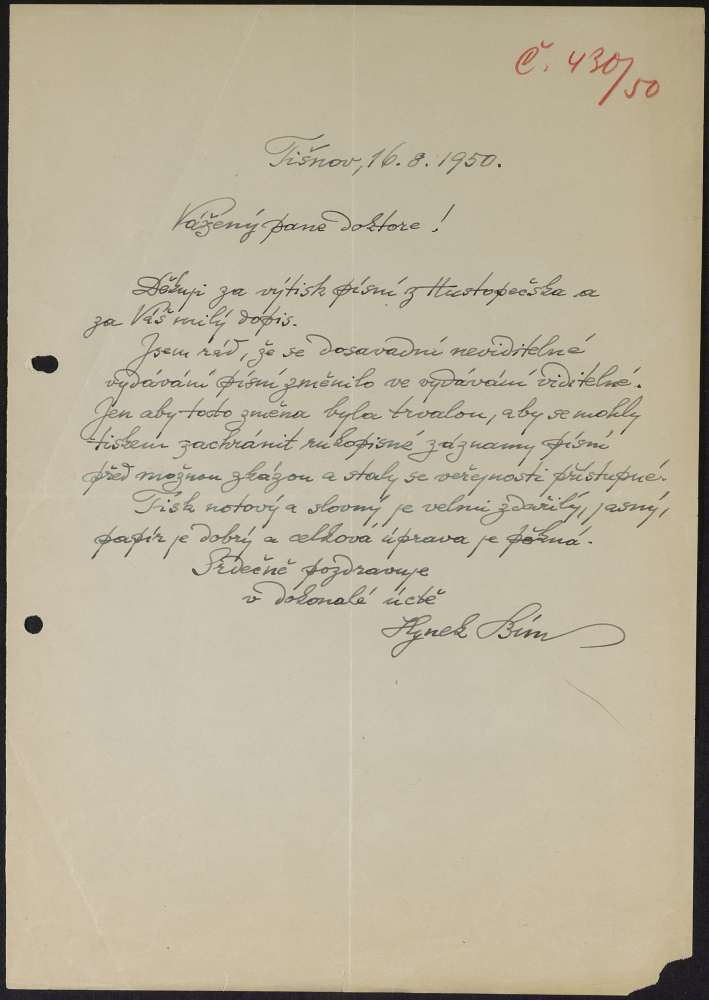 Č. 430/50
Tišnov, 16. 8. 1950.
Vážený pane doktore!
Děkuji za výtisk písní z Hustopečska a
za Váš milý dopis.
Jsem rád, že se dosavadní neviditelné
vydávání písní změnilo ve vydávání viditelné.
Jen aby tato změna byla trvalou, aby se mohly
tiskem zachránit rukopisné záznamy písní
před možnou zkázou a staly se veřejnosti přístupné.
Tisk notový a slovný je velmi zdařilý, jasný,
papír je dobrý a celková úprava je pěkná.
Srdečně pozdravuje
v dokonalé úctě
Hynek Bím